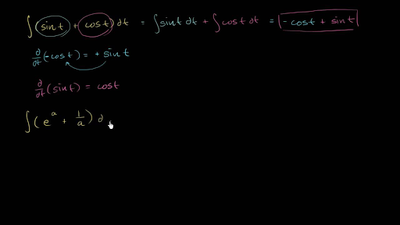 ∫ (sin t) + (cos t) dt = ∫ sin t dt + ∫ cos t dt = - cos t + sin t
∂/∂t (-cos t) = + sin t
∂/∂t (sin t) = cos t
∫ (e^a + 1/a) ∂